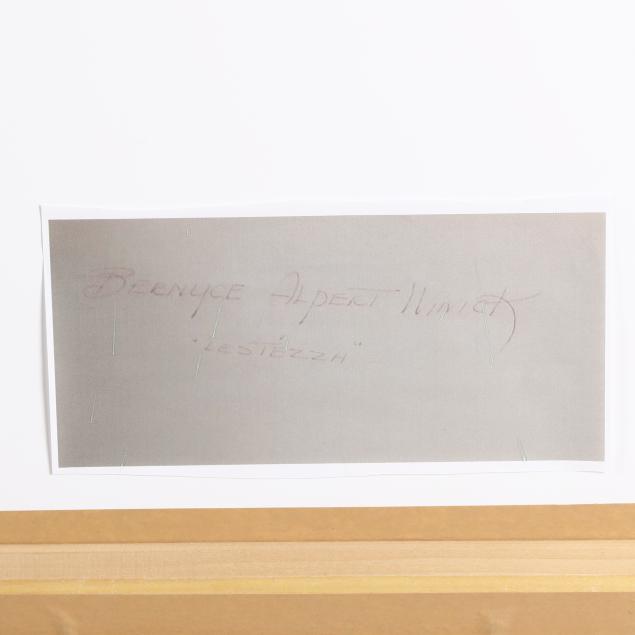 Bernyce Alpert Winick
"LESTEZZA"